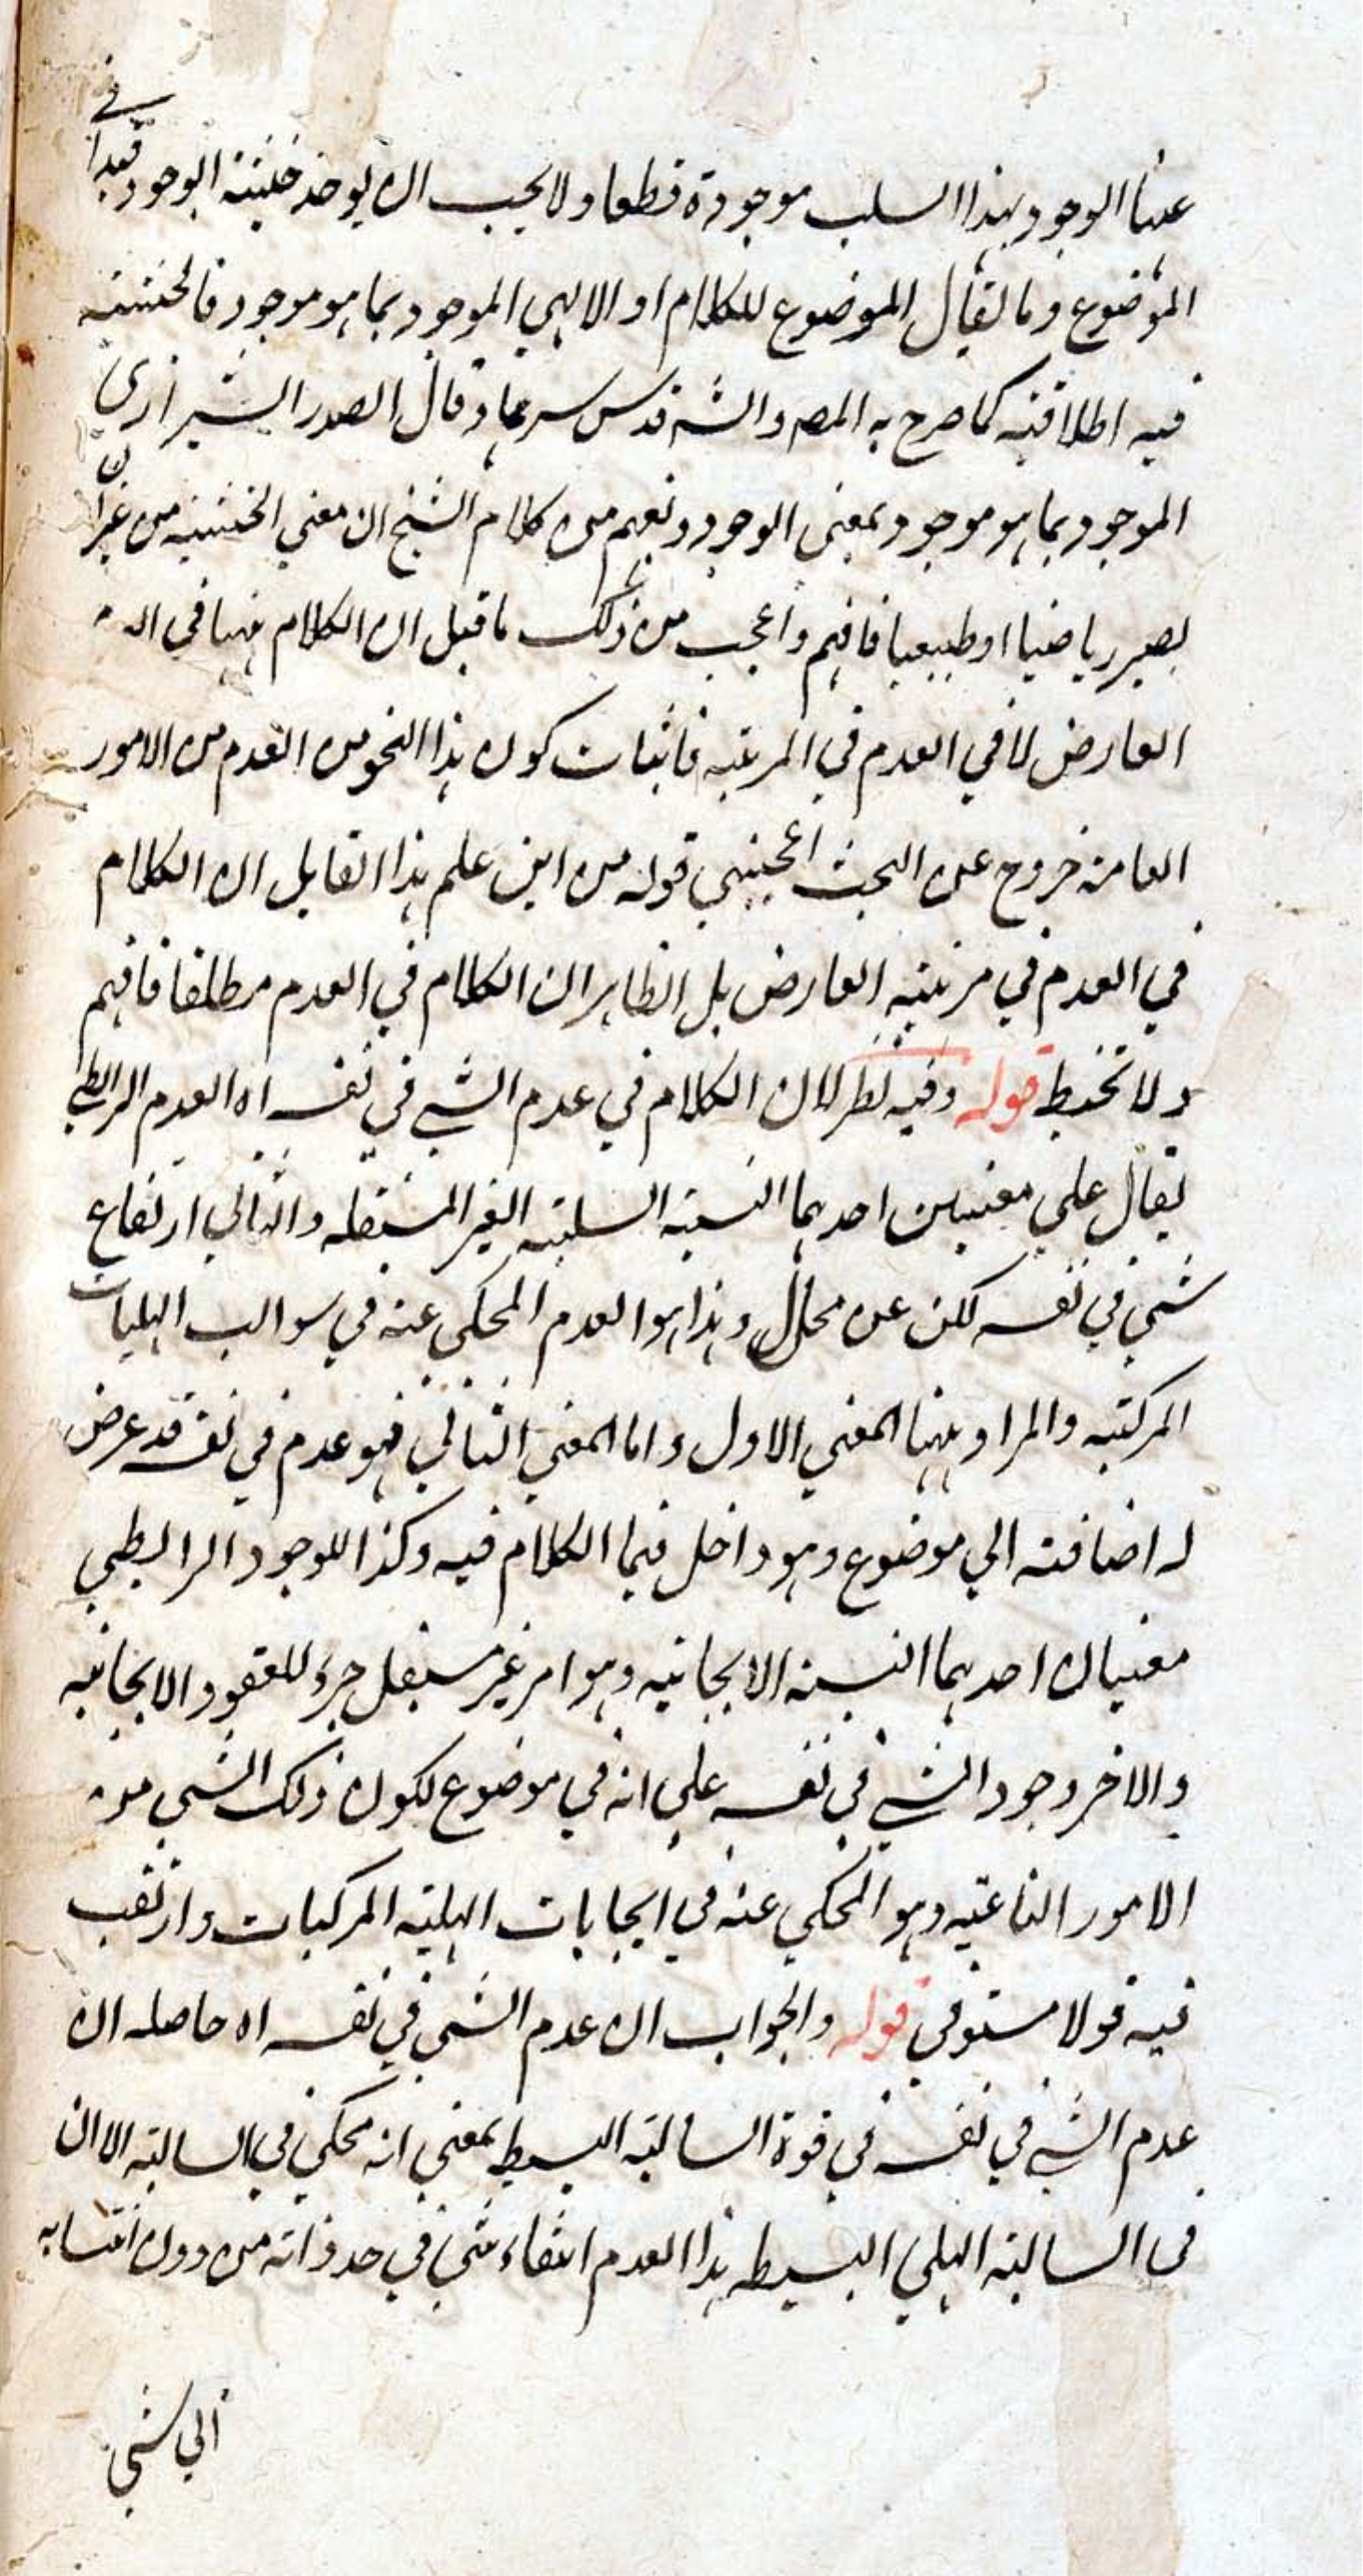 عنها الوجود بهذا السلب موجودة قطعا ولا يجب ان يوخذ حيثية الوجود قيدا في
الموضوع وما يقال الموضوع للكلام او الالهي الموجود بما هو موجود فالحيثية
فيه اطلاقية كما صرح به المص والش قدس سرهما وقال الصدر الشيرازي
الموجود بما هو موجود بمعنى الوجود ونفهم من كلام الشيخ ان معني الحيثية من غير ان
يصير رياضيا او طبيعيا فافهم واعجب من ذلك ما قيل ان الكلام ههنا في
العارض لا في العدم في المرتبة فاثبات كون هذا النحو من العدم من الامور
العامة خروج عن البحث اعجبني قوله من اين علم هذا القايل ان الكلام
في العدم في مرتبة العارض بل الظاهر ان الكلام في العدم مطلقا فافهم
ولا تخبط قوله وفيه نظر لان الكلام في عدم الشي في نفسه اه العدم الرابطي
يقال علي معنيين احدهما النسبة السلبية الغير المستقله والثاني ارتفاع
شي في نفسه لكن عن محل وهذا هو العدم المحكي عنه في سوالب الهليات
المركبة والمراد ههنا المعني الاول واما المعني الثاني فهو عدم في نفسه قد عرض
له اضافته الي موضوع وهو داخل فيما الكلام فيه وكذا للوجود الرابطي
معنيان احدهما النسبة الايجابية وهو امر غير مستقل جزء للعقود الايجابية
والاخر وجود الشي في نفسه علي انه في موضوع لكون ذلك الشي من
الامور الناعتية وهو المحكي عنه في ايجابات الهلية المركبات وارتقب
فيه قولا مستوفي قوله والجواب ان عدم الشي في نفسه اه حاصله ان
عدم الشي في نفسه في قوة السالبة البسيط بمعني انه محكي في السالبة الا ان
في السالبة الهلي البسيطه هذا العدم انتفاء شي في حد ذاته من دون انتسابه
الي شي